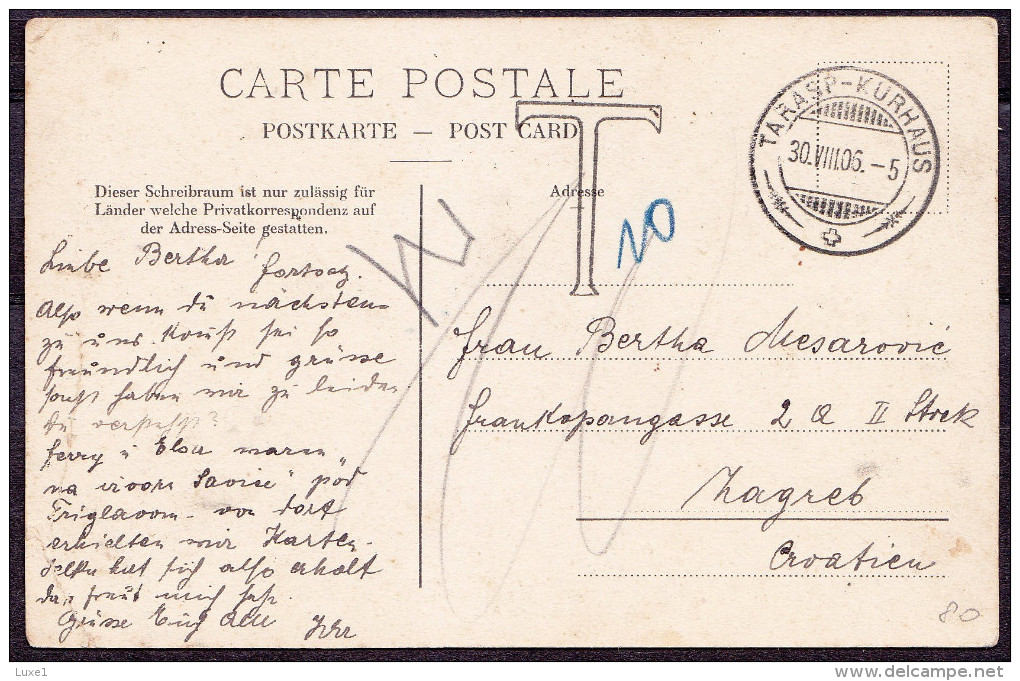 CARTE POSTALE
POSTKARTE — POST CARD
T
TARASP-KURHAUS
30.VIII.06.-5
Dieser Schreibraum ist nur zulässig für
Länder welche Privatkorrespondenz auf
der Adress-Seite gestatten.
Adresse
10
Liebe Bertha
Also wenn du nächsten
zu uns kommst sei so
freundlich und grüsse
sonst haben wir zu leiden
du verstehst?
Ferry u Elsa waren
na izvoru Savice" pod
Triglavom - von dort
erhielten wir Karten.
hat sich also erholt
das freut mich sehr.
Grüsse Euch alle
Frau Bertha Mesarović
Frankopangasse 2 a II Stock
Zagreb
Croatien
80
Luxe1
www.delcampe.net